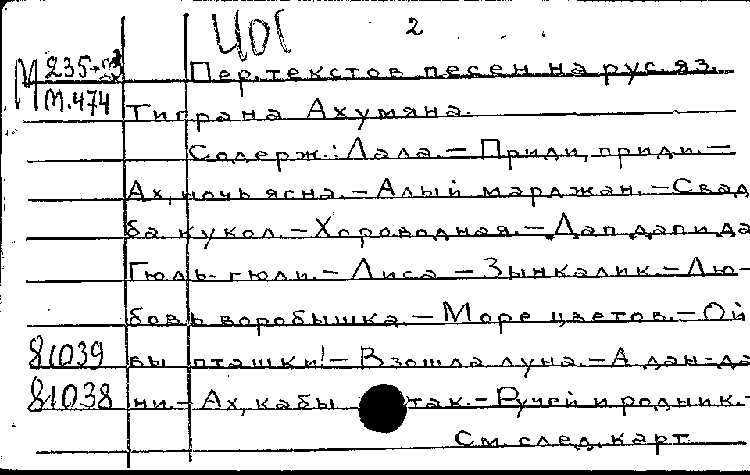 2
М 235-53 Пер. текстов песен на рус. яз.
М.474 Тиграна Ахумяна.
Содерж.: Лала. – Приди, приди. –
Ах, ночь ясна. – Алый марджан. – Свад
ба кукол. – Хороводная. – Дап дапи да
Гюль-гюли. – Лиса – Зынкалик. – Лю-
бовь воробышка. – Море цветов. – Ой
81039 вы пташки! – Взошла луна. – А дан-да
81038 ни. – Ах, кабы так. – Ручей и родник. –
См. след. карт